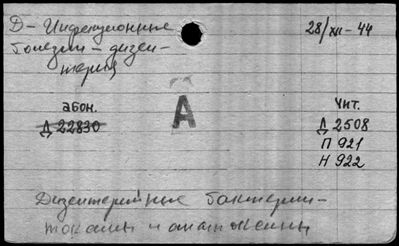 Д – Инфекционные
болезни – дизен-
терия
28/XII – 44
абон.
Д 22830
А
Чит.
Д 2508
П 921
Н 922
Дизентерийные бактерии –
токсины и анатоксины